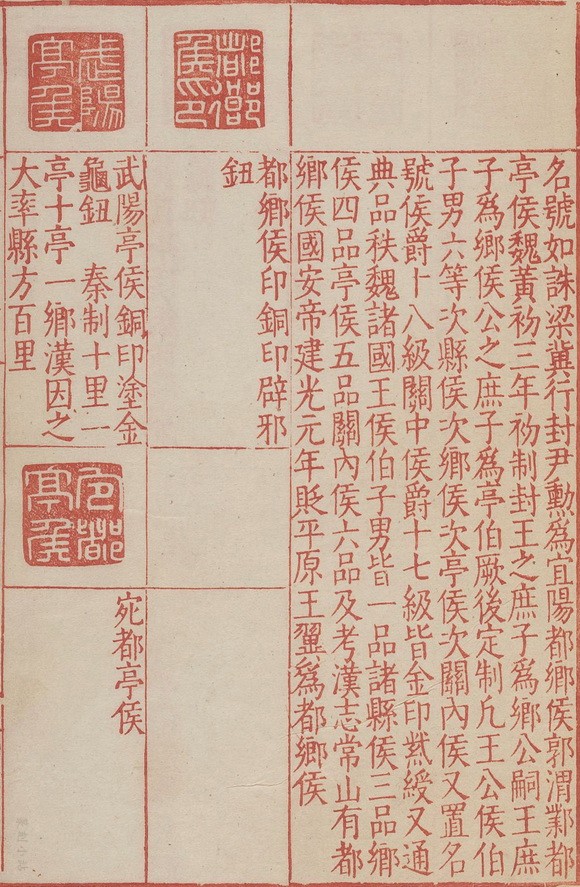 名號如誅梁冀行封尹勳爲宜陽都鄉侯郭渭鄴都
亭侯魏黃初三年初制封王之庶子爲鄉公嗣王庶
子爲鄉侯公之庶子爲亭伯厥後定制凡王公侯伯
子男六等次縣侯次鄉侯次亭侯次關內侯又置名
號侯爵十八級關中侯爵十七級皆金印紫綬又通
典品秩魏諸國王侯伯子男皆一品諸縣侯三品鄉
侯四品亭侯五品關內侯六品及考漢志常山有都
鄉侯國安帝建光元年貶平原王翼爲都鄉侯
都鄉
侯印
都鄉侯印銅印辟邪
鈕
武陽
亭侯
武陽亭侯銅印塗金
龜鈕 秦制十里一
亭十亭一鄉漢因之
大率縣方百里
宛都
亭侯
宛都亭侯